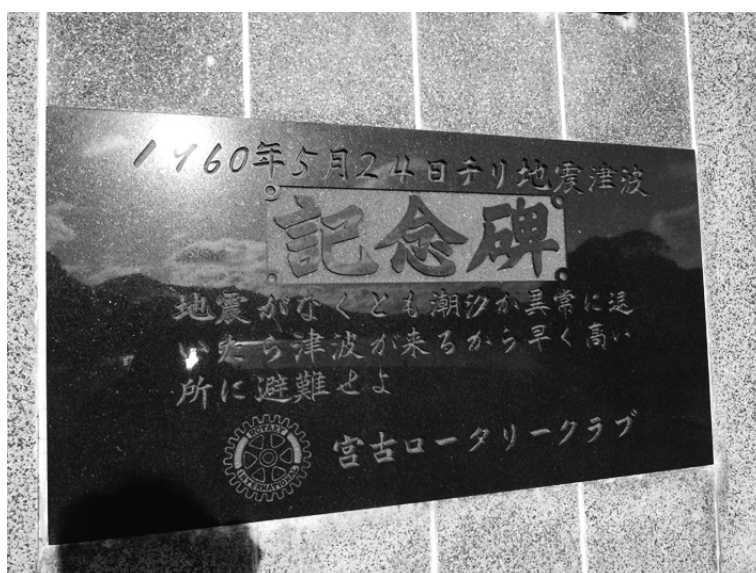 1960年5月24日チリ地震津波
記念碑
地震がなくとも潮汐が異常に退
いたら津波が来るから早く高い
所に避難せよ
ROTARY
INTERNATIONAL
宮古ロータリークラブ